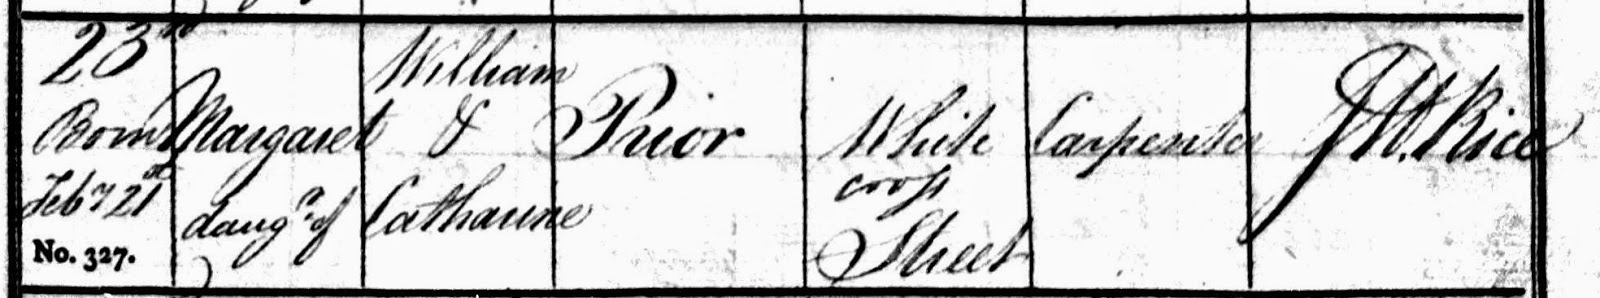 23rd
Born
Feby 21st
No. 327.
Margaret
daugr. of
William
&
Catharine
Prior
White
cross
Street
Carpenter
J W. Rice